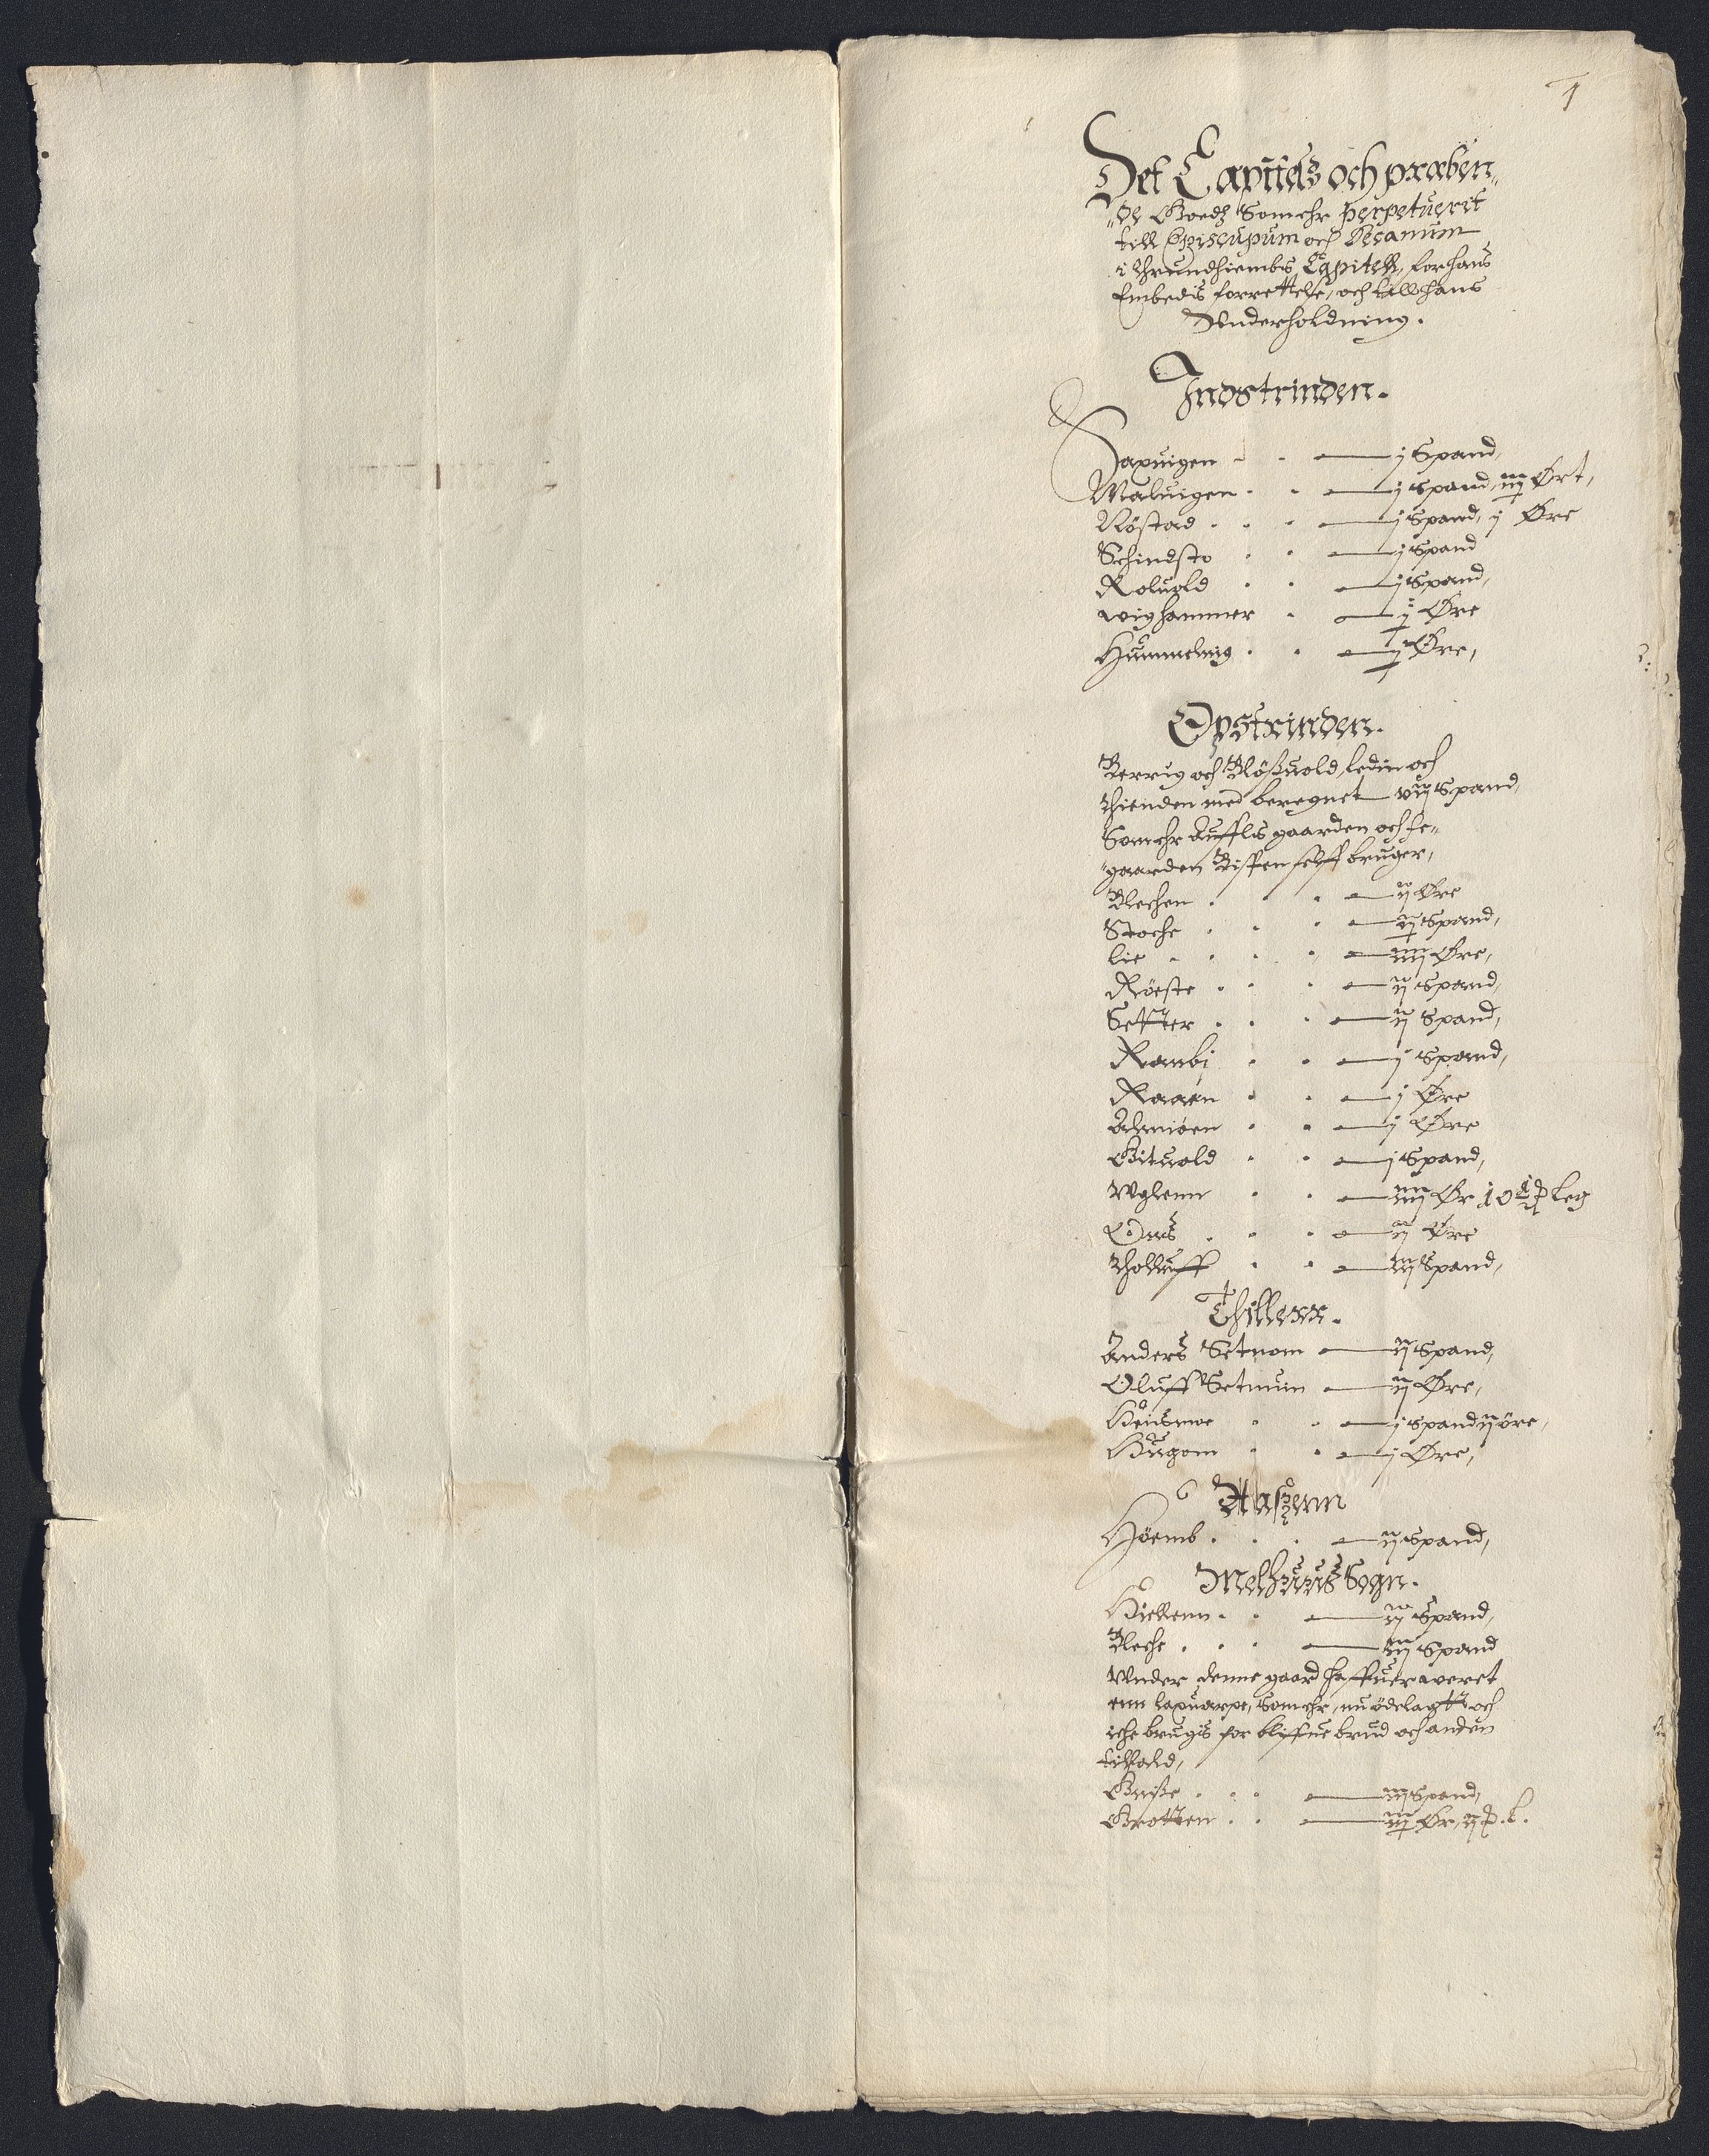 1
Det Capittels och præben„
„de Goedz Som ehr perpetuerit
till Episcupum och Decanum
i Thrundhiembs Capitell, for hans
Embedis forrettelse, och till hans
Underholdning.
Indstrinden.
Saxuigen - j Spand,
Maluigen - j spand, iij Ørt,
Nöstad - j Spand, j Øre
Schindsto - j spand
Roluold - j spand,
wighammer - ij Øre
Hummeluig - ij Øre,
Opstrinden.
Berrug och Blößuold, ledin och
thienden med beregnet vij Spand,
Som ehr gaarden och se„
„gaarden Bispen selff bruger,
Blechen - ij Øre
Stoche - ij spand,
lie - iiij Øre,
Röeste - ij spand,
Setter - ij spand,
Ranbj - j spand,
Raaen - j Øre
Alming - j Øre
Gituold - j spand,
Uglenn - iiij Ør
Ous - ij Øre
Tholluff - iij Spand,
Thillerr.
Anders Setnom - ij spand,
Oluff Setnum - ij Øre,
Köiismoe - j spand ij öre,
Kugom - j Øre,
Haszenn
Höemb - ij spand,
Melhuus Sogn.
Kiellenn - ij Spand,
Bleche - iij spand
Under denne gaard haffuer weret
enn laxuarpe, Som ehr nu ödelagtt och
iche brugis for bliffue brud och anden
tilfald,
Gruße - iij spand,
Grotten - iij Ør, ij p. l.